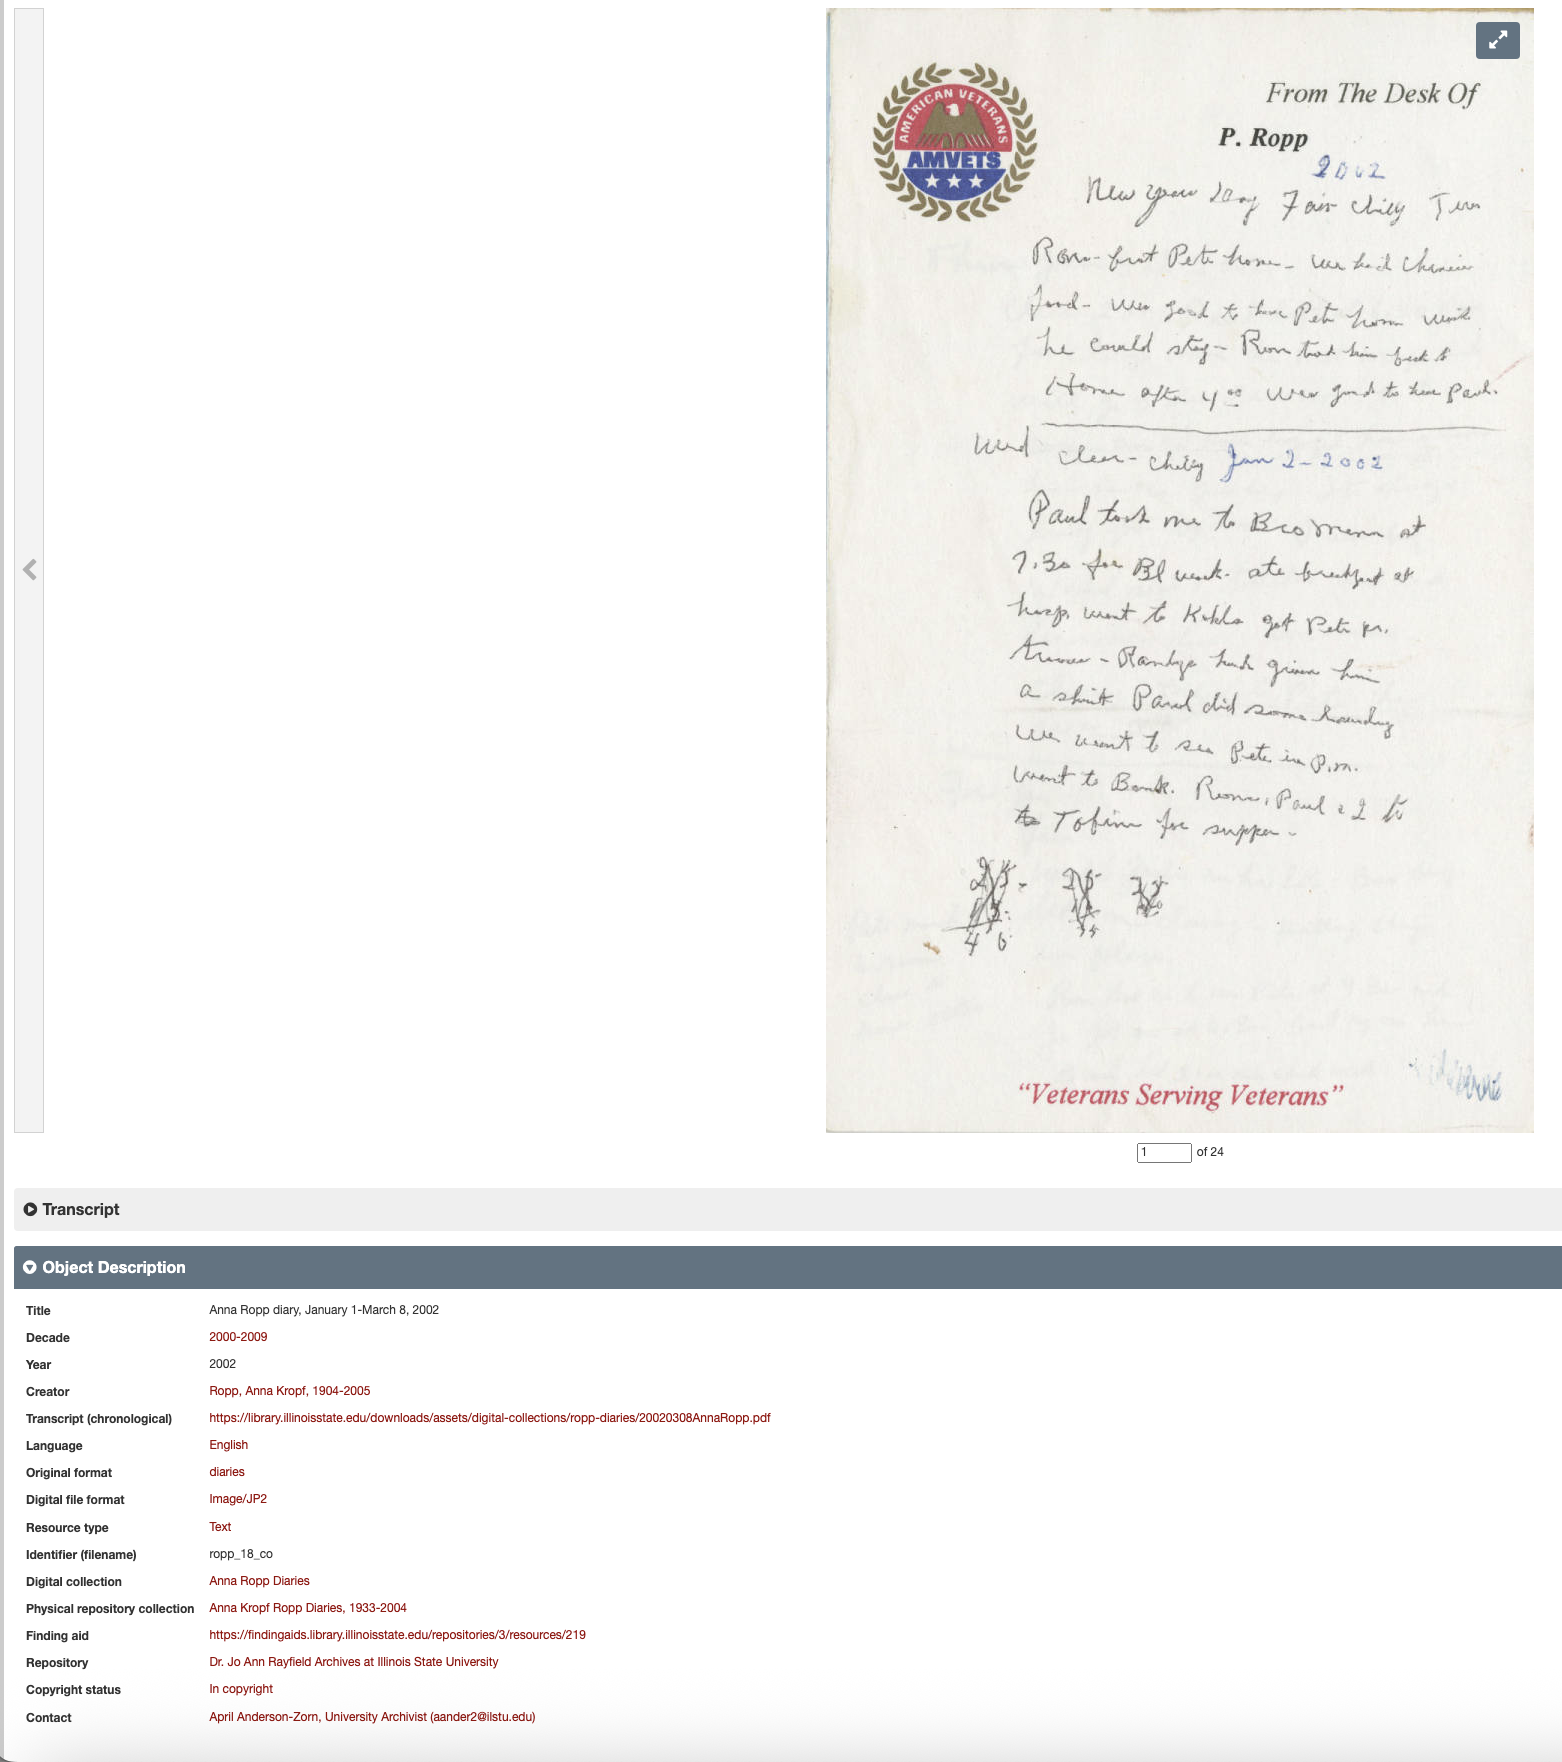 AMERICAN VETERANS
AMVETS
From The Desk Of
P. Ropp
2002
New years Day Fair Chilly Tues
Ron - Pete home - we had Chinese
food - was good to have Pete home wish
he could stay - Ron took him back to
Home after 4 00 was good to have Paul.
Wed clear - chilly Jan 2 - 2002
Paul took me to BroMenn at
7.30 for Bl work. ate breakfast at
hosp. went to Kohls got Pete pr.
- had given him
a shirt Paul did some laundry
we went to see Pete in P.m.
went to Bank. Paul & I to
to Tobins for supper -
25 - 25
4 6
"Veterans Serving Veterans"
1 of 24
Transcript
Object Description
Title Anna Ropp diary, January 1-March 8, 2002
Decade 2000-2009
Year 2002
Creator Ropp, Anna Kropf, 1904-2005
Transcript (chronological) https://library.illinoisstate.edu/downloads/assets/digital-collections/ropp-diaries/20020308AnnaRopp.pdf
Language English
Original format diaries
Digital file format Image/JP2
Resource type Text
Identifier (filename) ropp_18_co
Digital collection Anna Ropp Diaries
Physical repository collection Anna Kropf Ropp Diaries, 1933-2004
Finding aid https://findingaids.library.illinoisstate.edu/repositories/3/resources/219
Repository Dr. Jo Ann Rayfield Archives at Illinois State University
Copyright status In copyright
Contact April Anderson-Zorn, University Archivist (aander2@ilstu.edu)